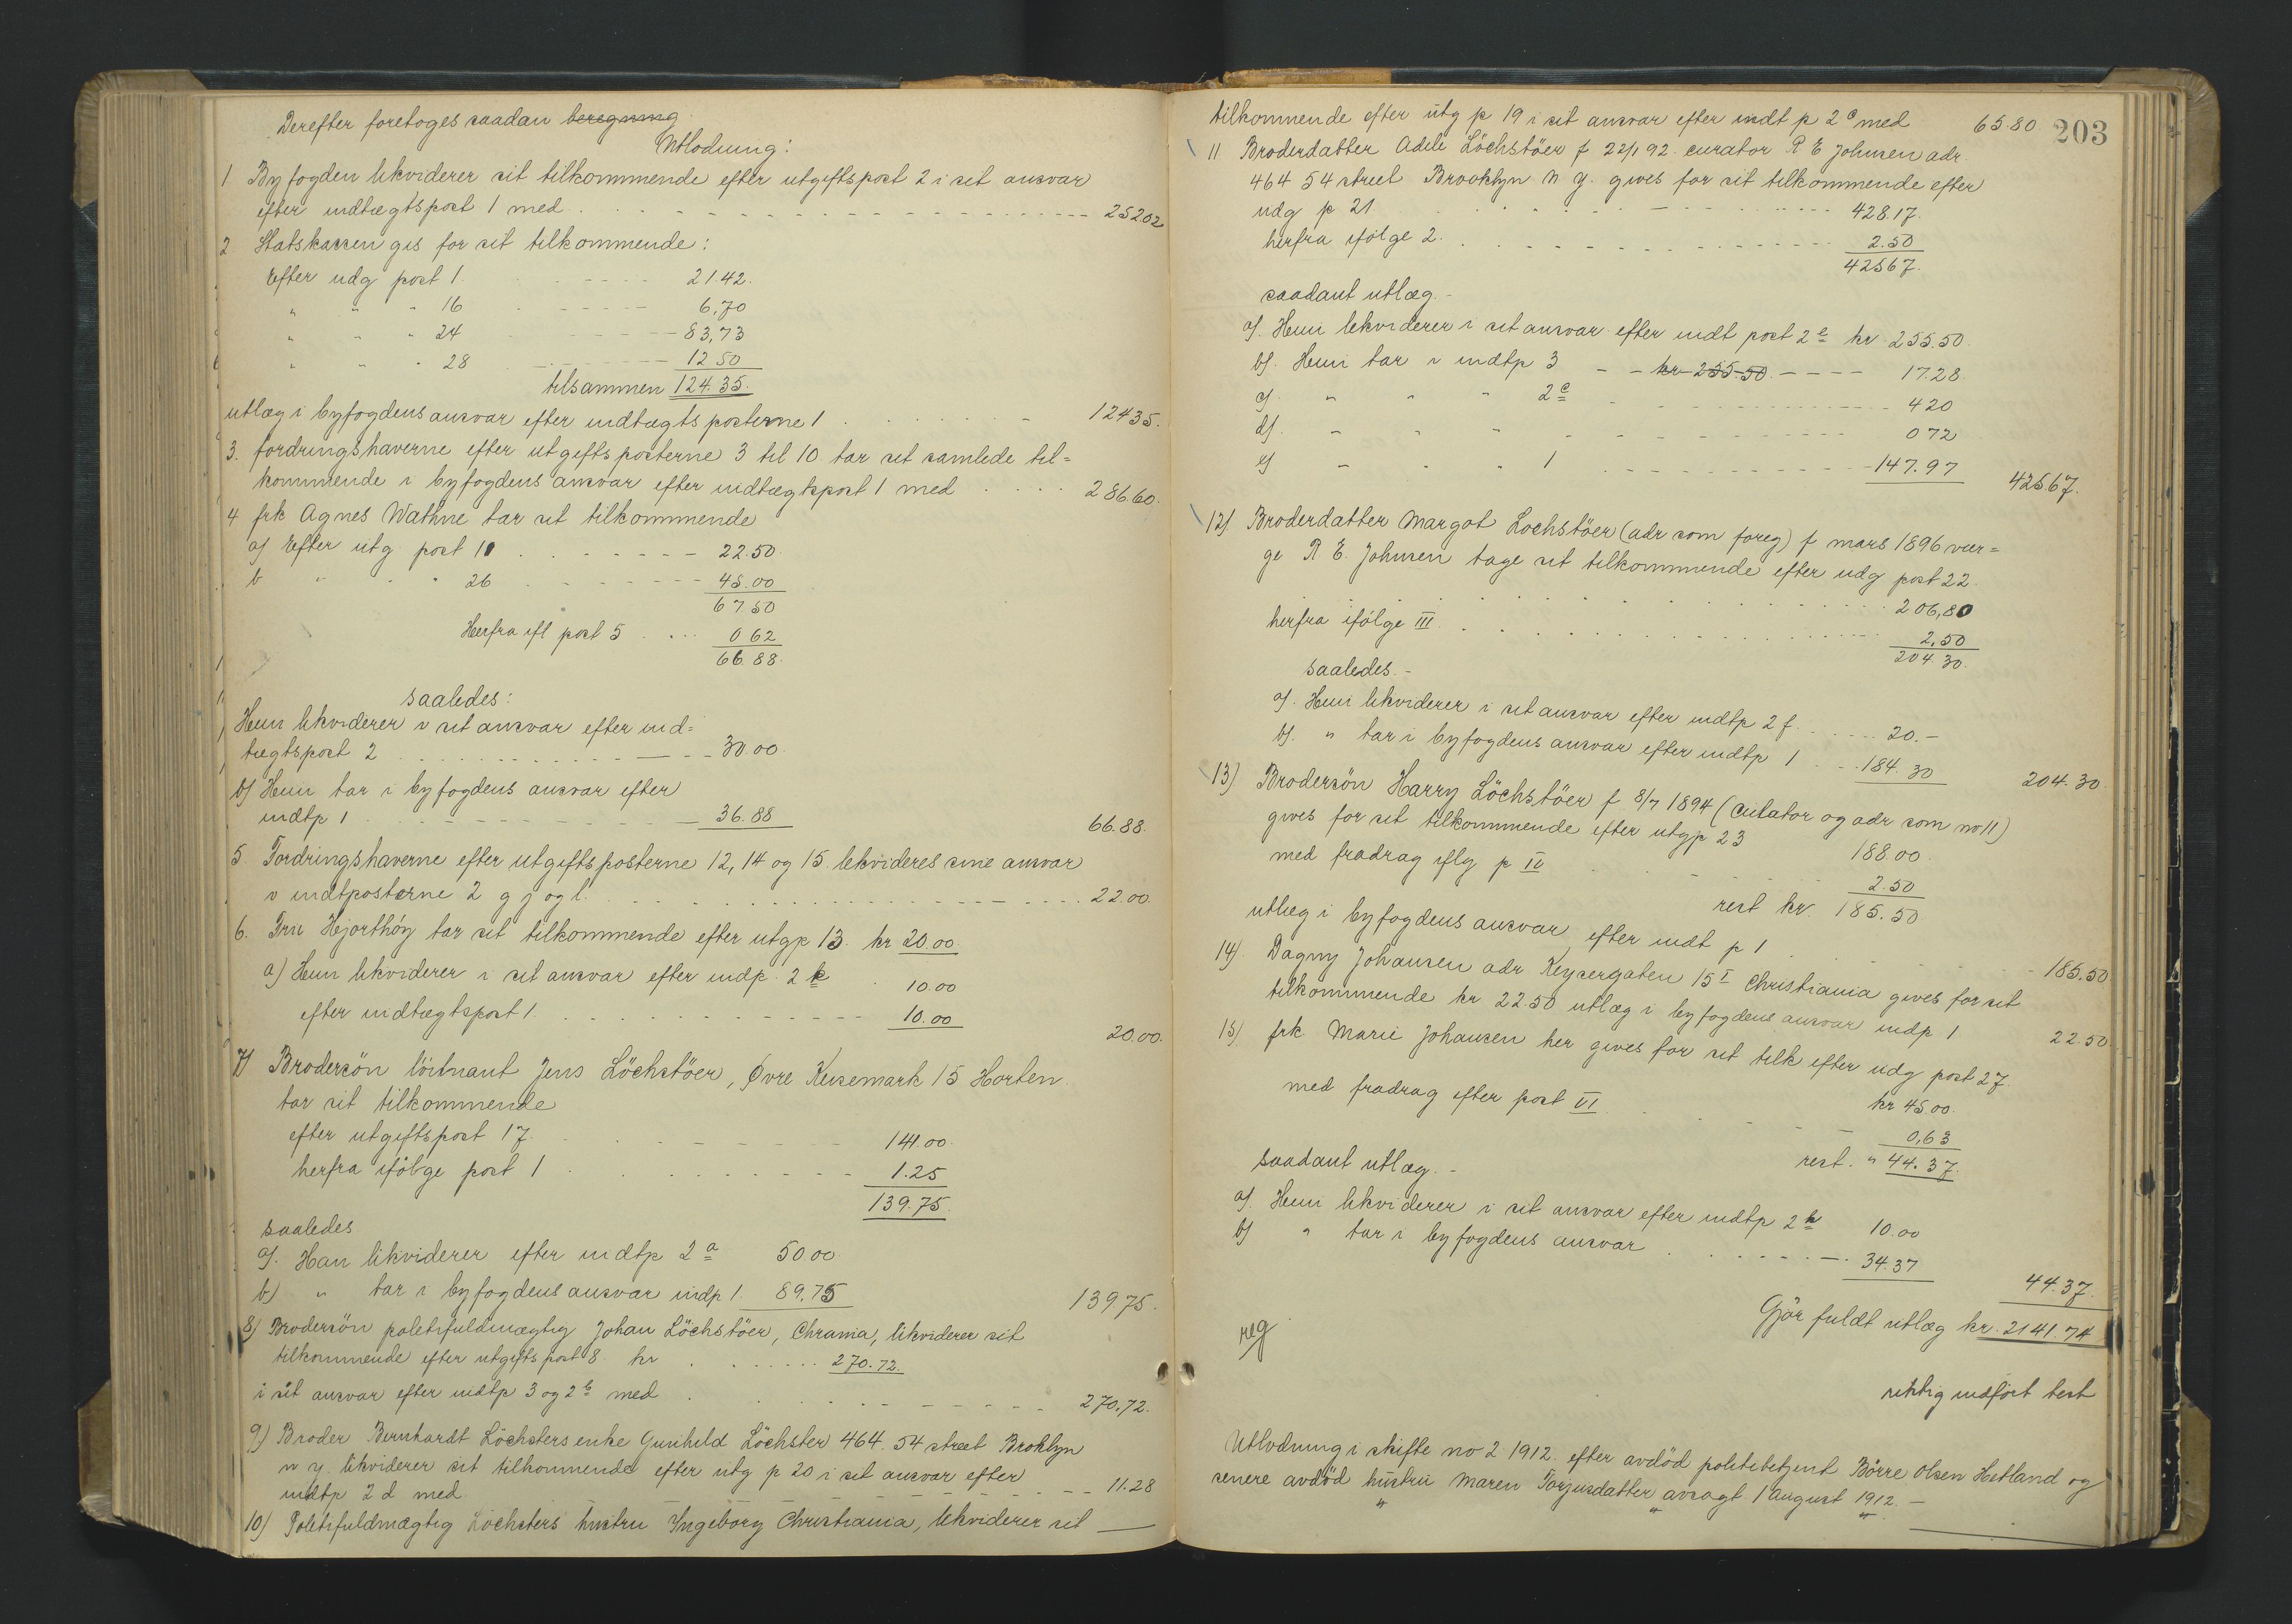 Derefter foretoges saadan beregning
Utlodning:
1 Byfogden likviderer sit tilkommende efter utgiftspost 2 i sit ansvar
efter indtægtspost 1 med 252.02
2 Statskassen gis for sit tilkommende:
Efter udg post 1. 21.42.
" " " 16 6,70
" " " 24 83,73
" " " 28 12 50
tilsammen 124.35.
utlæg i byfogdens ansvar efter indtægtsposterne 1 124 35.
3. fordringshaverne efter utgiftsposterne 3 til 10 tar sit samlede til=
kommende i byfogdens ansvar efter indtægtspost 1 med 286.60.
4 frk Agnes Wathne tar sit tilkommende
a) Efter utg post 11 22.50.
b " " " 26 45.00
67.50
Herfra ifl post 5 0 62
66.88.
saaledes:
Hun likviderer i sit ansvar efter ind=
tægtspost 2 30.00.
b) Hun tar i byfogdens ansvar efter
indtp 1 36.88 66.88.
5 Fordringshaverne efter utgiftsposterne 12, 14 og 15 likvideres sine ansvar
v indtposterne 2 g j og l. 22.00.
6. Fru Hjorthöy tar sit tilkommende efter utgp 13. kr 20.00.
a) Hun likviderer i sit ansvar efter indp. 2 k 10.00
efter indtægtspost 1. 10.00 20.00.
7) Brodersön löitnant Jens Löchstöer, Øvre Keisemark 15 Horten.
tar sit tilkommende
efter utgiftspost 17. 141.00.
herfra ifölge post 1 1.25
139.75.
saaledes
a). Han likviderer efter indtp 2 a 50 00.
b) " tar i byfogdens ansvar indp 1. 89,75 139.75.
8) Brodersön politifuldmægtig Johan Löchstöer, Chrania, likviderer sit
tilkommende efter utgiftspost 8. kr 270.72.
i sit ansvar efter indtp 3 og 2 b med 270.72.
9) Broder Bernhardt Löchsters enke Gunhild Löchster 464. 54 street Broklyn
n y. likviderer sit tilkommende efter utg p 20 i sit ansvar efter
indtp 2 d med 11.28
10) Politifuldmægtig Löchsters hustru Ingeborg Christiania, likviderer sit
203
tilkommende efter utg p 19 i sit ansvar efter indt p 2 c med 65.80
11 Broderdatter Adele Löchstöer f 22/1 92. curator R E Johnsen adr.
464 54 street Brooklyn N Y. gives for sit tilkommende efter
udg p 21. 428.17.
herfra ifölge 2. 2.50
425 67.
saadant utlæg.
a). Hun likviderer i sit ansvar efter indt post 2 e kr 255.50.
b). Hun tar i indtp 3 kr 255.50. 17.28.
c). " " " 2 c 4 20
d). " " " 0 72
e) " " " 1 147.97 425.67.
12) Broderdatter Margot Lochstöer (adr som foreg) f mars 1896 vær=
ge R E. Johnsen tage sit tilkommende efter udg post 22.
206,80
herfra ifölge III. 2,50
204.30.
saaledes.
a). Hun likviderer i sit ansvar efter indtp 2 f. 20.-
b). " tar i byfogdens ansvar efter indtp 1 184.30 204.30
13) Brodersön Harry Löchstöer f 8/7 1894 (curator og adr som no 11)
gives for sit tilkommende efter utgp 23 188.00.
med fradrag iflg p IV 2.50
rest kr. 185.50
utlæg i byfogdens ansvar efter indt p 1 185.50
14). Dagny Johansen adr Keysergaten 15 I Christiania gives for sit
tilkommende kr 22.50 utlæg i byfogdens ansvar indp 1 22.50
15) frk. Marie Johansen her gives for sit tilk efter udg post 27.
kr 45 00.
med fradrag efter post VI 0,63
rest. " 44.37.
saadant utlæg.
a). Hun likviderer i sit ansvar efter indtp 2 h 10.00
b) " tar i byfogdens ansvar 34.37 44.37.
Gjör fuldt utlæg kr. 2141.74
reg
riktig indfört test
Utlodning i skifte no 2 1912. efter avdöd politibetjent Börre Olsen Hetland og
senere avdöd hustru Maren Torjusdatter avsagt 1 august 1912.